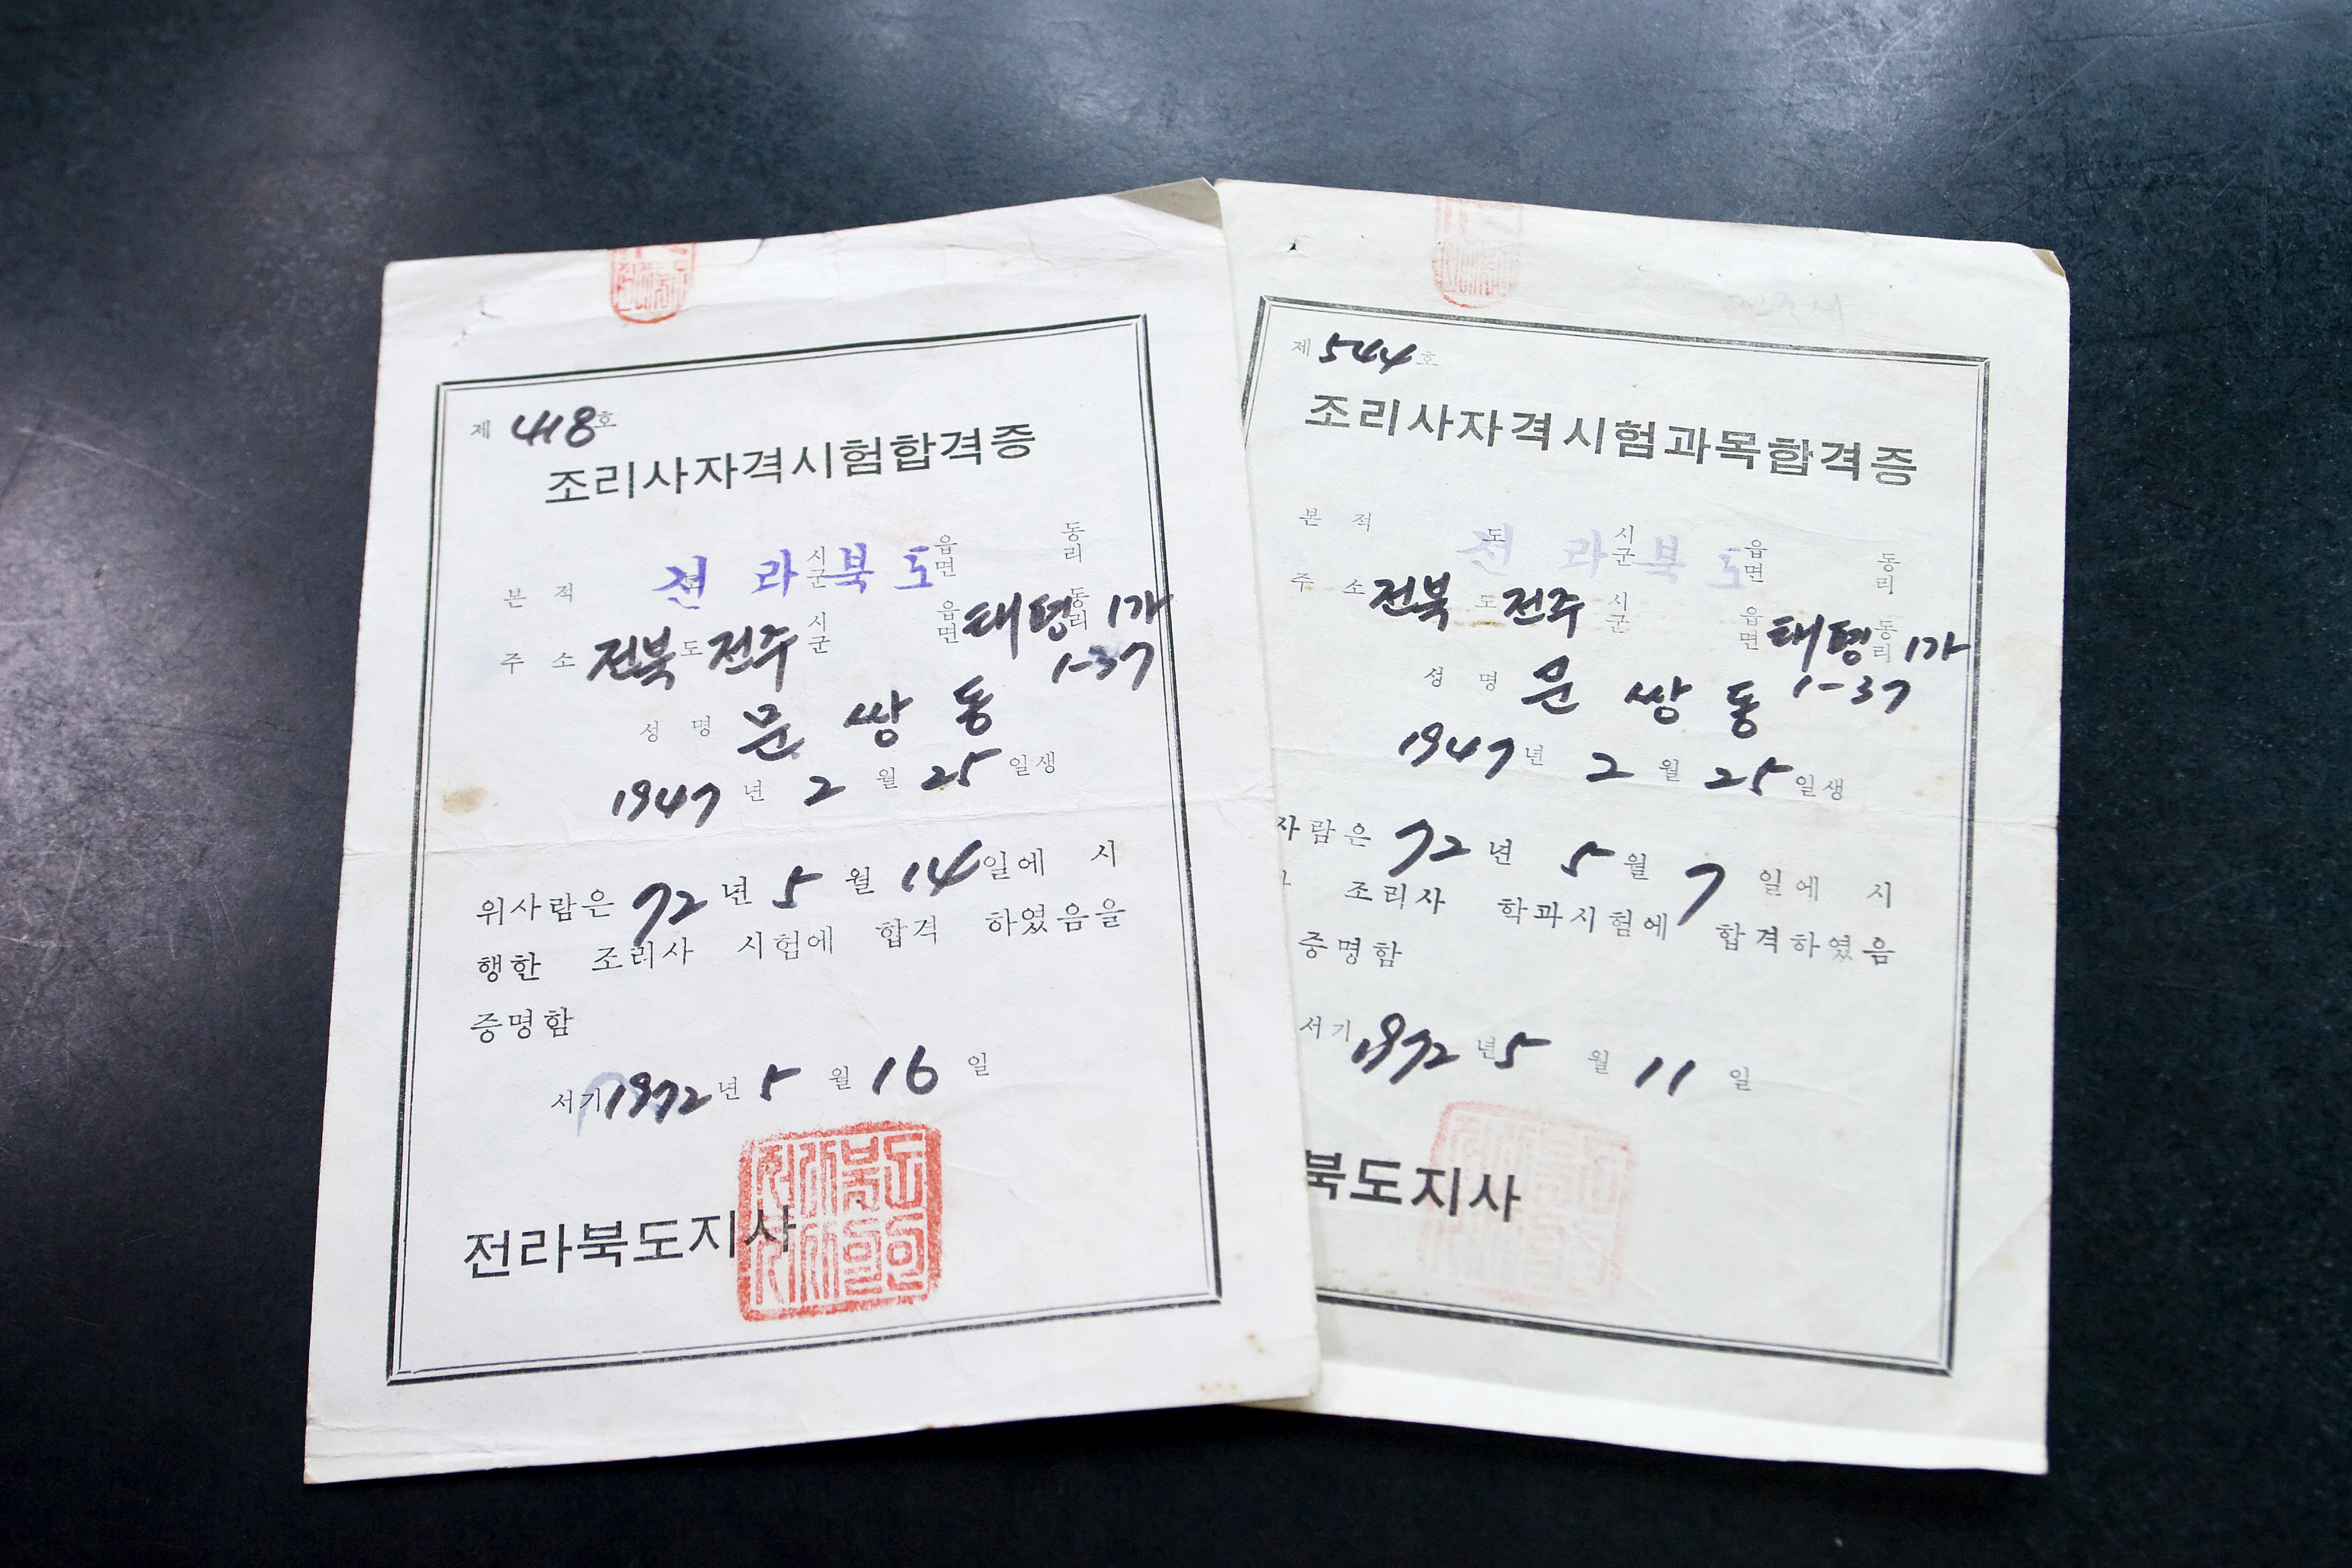 제 418 호
조리사자격시험합격증
본 적 전라북도 시군 읍면 동리
주 소 전북 도 전주 시군 읍면 태평 동리 1가
1-37
성 명 문 쌍 동
1947 년 2 월 25 일생
위사람은 72 년 5 월 14 일에 시
행한 조리사 시험에 합격 하였음을
증명함
서기 1972 년 5 월 16 일
전라북도지사
제 544 호
조리사자격시험과목합격증
본 적 전라북도 도 시군 읍면 동리
주 소 전북 도 전주 시군 읍면 태평 동리 1가
1-37
성 명 문 쌍 동
1947 년 2 월 25 일생
자람은 72 년 5 월 7 일에 시
조리사 학과시험에 합격하였음
증명함
서기 1972 년 5 월 11 일
북도지사